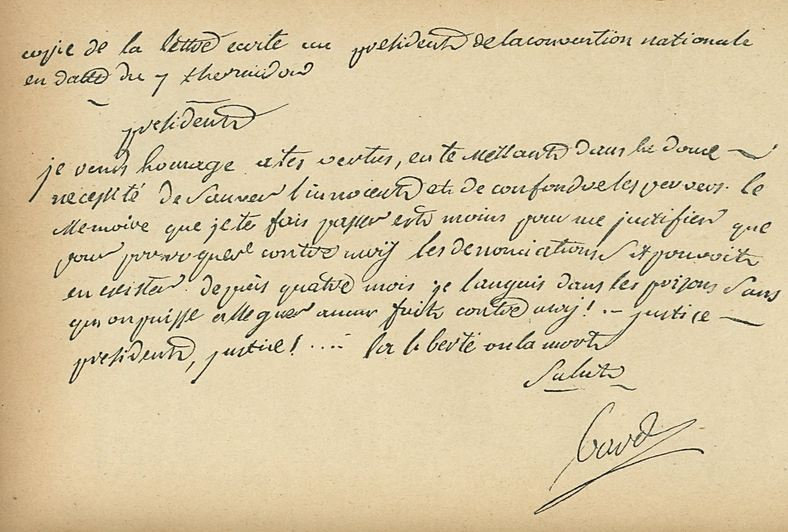 copie de la lettre ecrite au president de la convention nationale
en datte du 7 thermidor
president
je rends homage a tes vertus, en te mettant dans la douce
necessité de sauver l'innocent et de confondre les pervers. le
memoire que je te fais passer est moins pour me justifier que
pour provoquer contre moij les denonciations s'il pouvoit
en exister. depuis quatre mois je languis dans les prisons sans
qu'on puisse alleguer aucun fait contre moij! .– justice –
president, justice! .... la liberté ou la mort
Salut